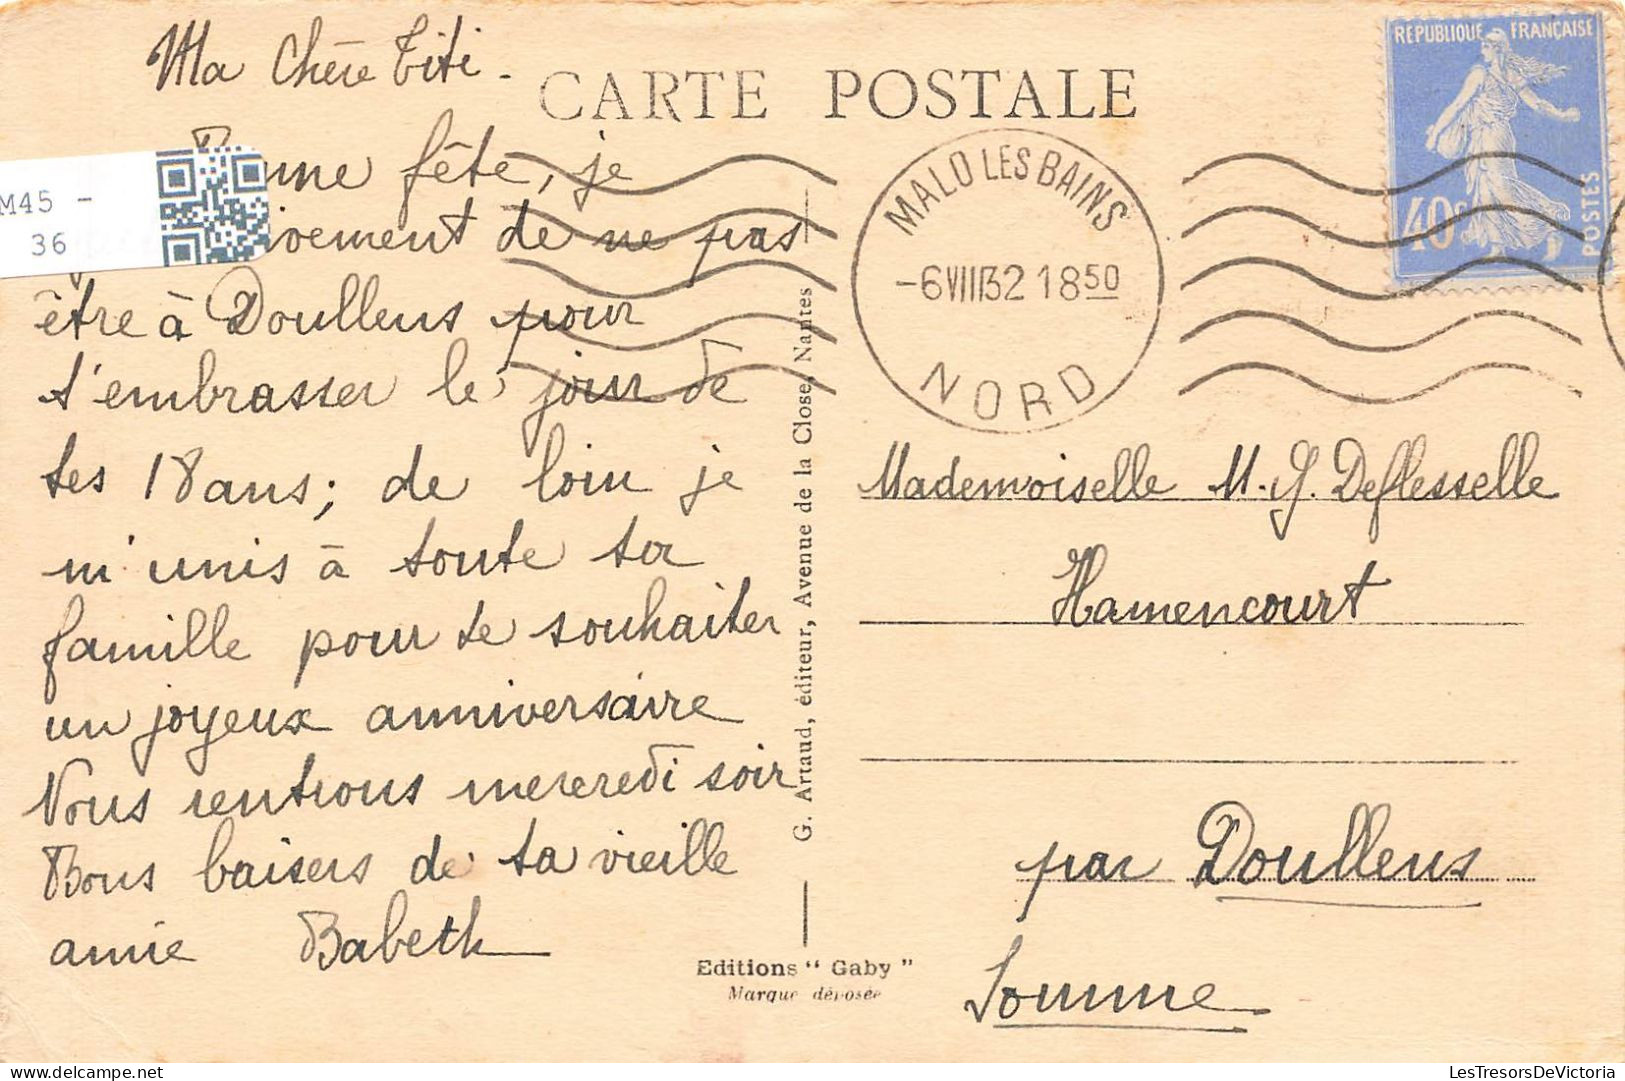 Ma Chère Titi -
CARTE POSTALE
REPUBLIQUE FRANÇAISE
40c
POSTES
MALO LES BAINS
-6 VIII 32 18 50
NORD
M45 -
36
Bonne fête, je
de ne pas
être à Doullens pour
t'embrasser le jour de
tes 18 ans ; de loin je
m'unis à toute ta
famille pour te souhaiter
un joyeux anniversaire
Nous rentrons mercredi soir
Bons baisers de ta vieille
amie Babeth
G. Artaud, éditeur, Avenue de la Close, Nantes
Editions "Gaby"
Marque déposée
Mademoiselle M. J. Deflesselle
Hamencourt
par Doullens
Somme
LesTresorsDeVictoria